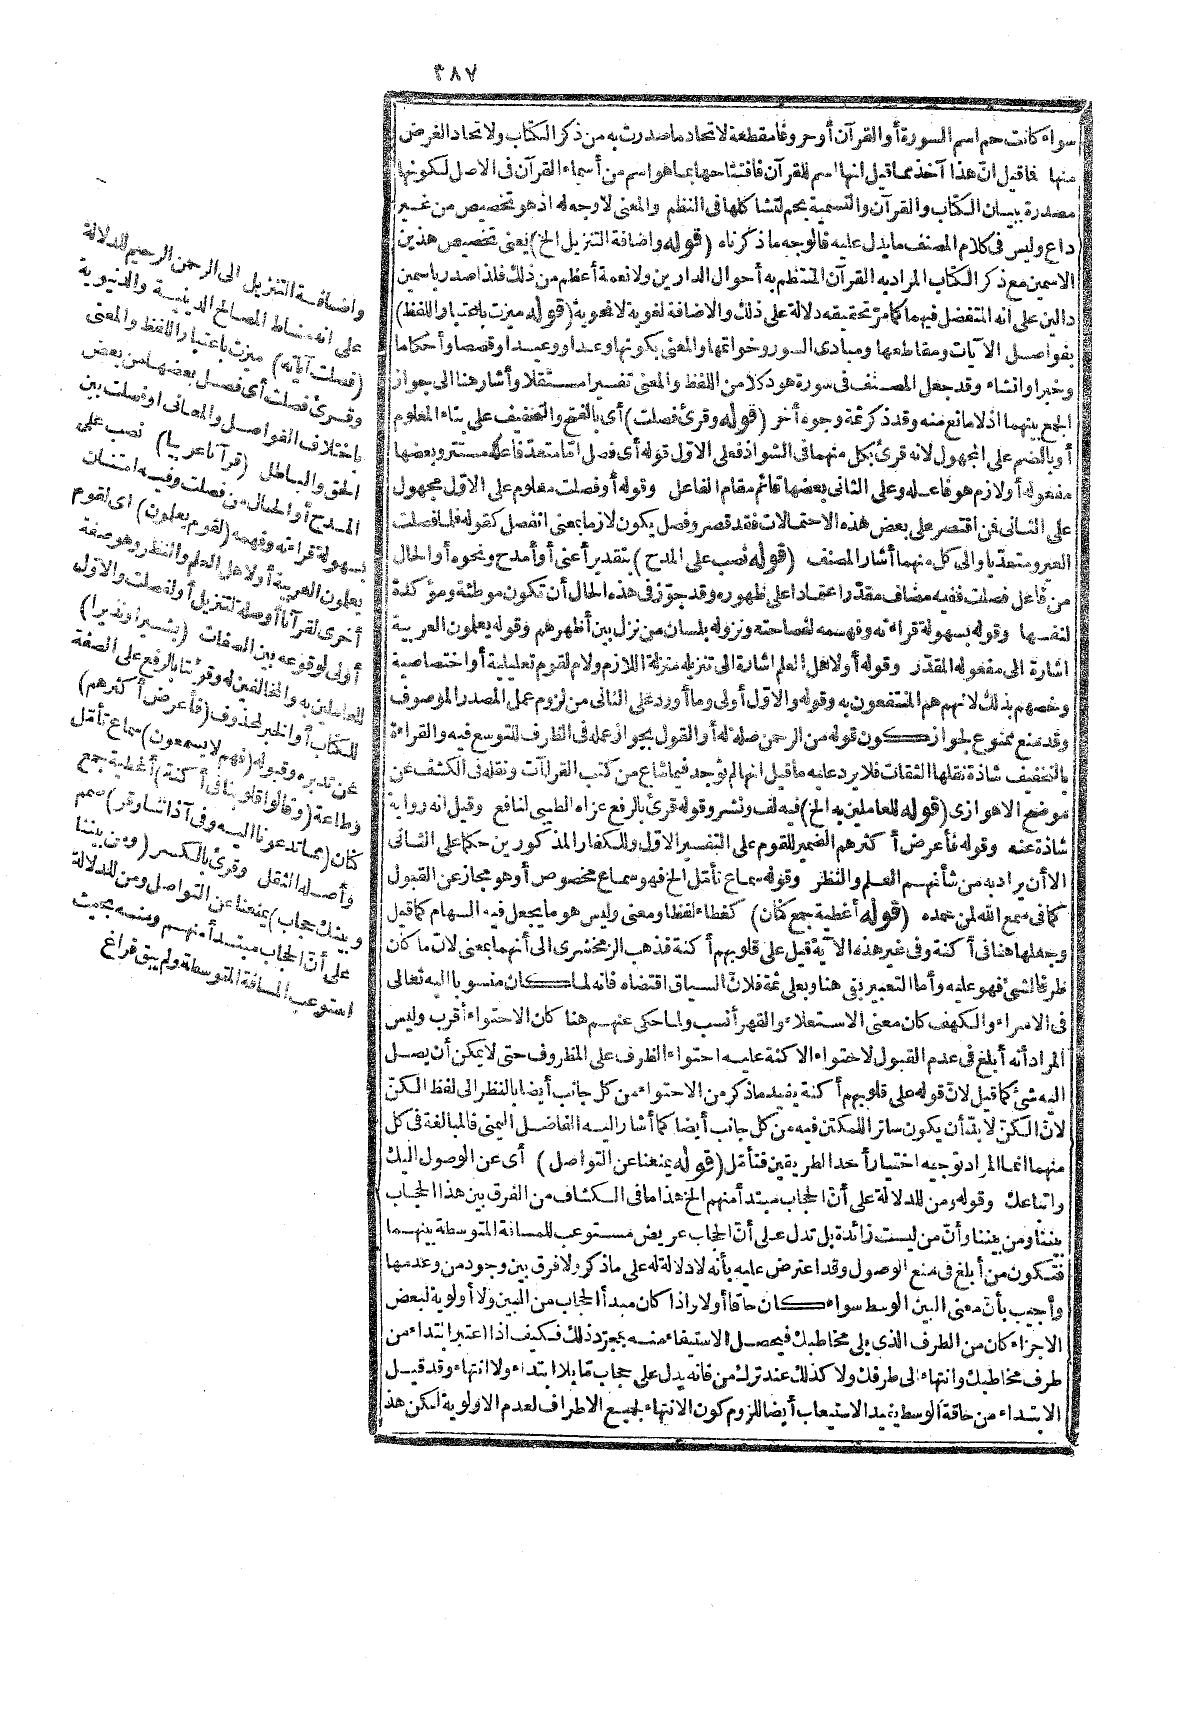 ٣٨٧
سواء كانت حم اسم السورة أو القرآن أو حروفا مقطعة لاتحاد ما صدرت به من ذكر الكتاب ولاتحاد الغرض
منها فاقيل انّ هذا آخذ مما قيل انها اسم للقرآن فافتتاحها بما هو اسم من أسماء القرآن فى الاصل لكونها
مصدرة ببيان الكتاب والقرآن والتسمية بحم لتشاكلها فى النظم والمعنى لا وجه له اذ هو تخصيص من غير
داع وليس فى كلام المصنف ما يدل عليه فالوجه ما ذكرناه (قوله واضافة التنزيل الخ) يعنى تخصيص هذين
الاسمين مع ذكر الكتاب المراد به القرآن المنتظم به أحوال الدارين ولا نعمة أعظم من ذلك فلذا صدر باسمين
دالين على انه المتفضل فيهما كما مرّ تحقيقه دلالة على ذلك والاضافة لغوية لا نحوية (قوله ميزت باعتبار اللفظ)
بفواصل الآيات ومقاطعها ومبادى السور وخواتمها والمعنى بكونها وعدا ووعيدا وقصصا وأحكاما
وخبرا وانشاء وقد جعل المصنف فى سورة هود كلا من اللفظ والمعنى تفسيرا مستقلا وأشار هنا الى جواز
الجمع بينهما اذ لا مانع منه وقد ذكر ثمة وجوه أخر (قوله وقرئ فصلت) أى بالفتح والتخفيف على بناء المعلوم
أو بالضم على المجهول لانه قرئ بكل منهما فى الشواذ فعلى الاول قوله أى فصل اما متعدّ فاعله مستتر وبعضها
مفعوله أو لازم هو فاعله وعلى الثانى بعضها قائم مقام الفاعل وقوله أو فصلت معلوم على الاول مجهول
على الثانى فن اقتصر على بعض هذه الاحتمالات فقد قصر وفصل يكون لازما بمعنى انفصل كقوله فلما فصلت
العير ومتعديا والى كل منهما أشار المصنف (قوله نصب على المدح) بتقدير أعنى أو أمدح ونحوه أو الحال
من فاعل فصلت ففيه مضاف مقدّر اعتمادا على ظهوره وقد جوّز فى هذه الحال أن تكون موطئة ومؤكدة
لنفسها وقوله بسهولة قراءته وفهمه لفصاحته ونزوله بلسان من نزل بين أظهرهم وقوله يعلمون العربية
اشارة الى مفعوله المقدّر وقوله أو لاهل العلم اشارة الى تنزيله منزلة اللازم ولام لقوم تعليلية أو اختصاصية
وخصهم بذلك لانهم هم المنتفعون به وقوله والاوّل أولى وما أورد على الثانى من لزوم عمل المصدر الموصوف
وقد منع ممنوع لجواز كون قوله من الرحمن صلة له أو القول بجواز عمله فى الظرف للتوسع فيه والقراءة
بالتخفيف شاذة نقلها الثقات فلا يرد عليه ما قيل انها لم توجد فيما شاع من كتب القراآت ونقله فى الكشف عن
موضح الاهوازى (قوله للعاملين به الخ) فيه لف ونشر وقوله قرئ بالرفع عزاه الطيبى لنافع وقيل انه رواية
شاذة عنه وقوله فأعرض أكثرهم الضمير للقوم على التفسير الاول وللكفار المذكورين حكما على الثانى
الا أن يراد به من شأنهم العلم والنظر وقوله سماع تأمّل الخ فهو سماع مخصوص أو هو مجاز عن القبول
كما فى سمع الله لمن حمده (قوله أغطية جمع كنان) كغطاء لفظا ومعنى وليس هو ما يجعل فيه السهام كما قيل
وجعلها هنا فى أكنة وفى غير هذه الآية قيل على قلوبهم أكنة فذهب الزمخشرى الى أنهما بمعنى لانّ ما كان
ظرفا لشئ فهو عليه وأما التعبير بفى هنا وبعلى ثمة فلانّ السياق اقتضاه فانه لما كان منسوبا اليه تعالى
فى الاسراء والكهف كان معنى الاستعلاء والقهر أنسب ولما حكى عنهم هنا كان الاحتواء أقرب وليس
المراد أنه أبلغ فى عدم القبول لاحتواء الاكنة عليه احتواء الظرف على المظروف حتى لا يمكن أن يصل
اليه شئ كما قيل لانّ قوله على قلوبهم أكنة يفيد ما ذكر من الاحتواء من كل جانب أيضا بالنظر الى لفظ الكنّ
لانّ الكنّ لا بدّ أن يكون ساترا للمكتن فيه من كل جانب أيضا كما أشار اليه الفاضل اليمنى فالمبالغة فى كل
منهما انما المراد توجيه اختيار أحد الطريقين فتأمّل (قوله يمنعنا عن التواصل) أى عن الوصول اليك
واتباعك وقوله ومن للدلالة على أنّ الحجاب مبتدأ منهم الخ هذا ما فى الكشاف من الفرق بين هذا الحجاب
بيننا ومن بيننا وأنّ من ليست زائدة بل تدل على أنّ الحجاب عريض مستوعب للمسافة المتوسطة بينهما
فتكون من أبلغ فى منع الوصول وقد اعترض عليه بأنه لا دلالة له على ما ذكر ولا فرق بين وجود من وعدمها
وأجيب بأنّ معنى البين الوسط سواء كان حاقا أولا واذا كان مبدأ الحجاب من البين ولا أولوية لبعض
الاجزاء كان من الطرف الذى يلى مخاطبك فيحصل الاستيفاء منه بمجرّد ذلك فكيف اذا اعتبر ابتداء من
طرف مخاطبك وانتهاء الى طرفك ولا كذلك عند ترك من فانه يدل على حجاب مّا بلا ابتداء ولا انتهاء وقد قيل
الابتداء من حاقة الوسط يفيد الاستيعاب أيضا للزوم كون الانتهاء لجميع الاطراف لعدم الاولوية لكن هذ
واضافة التنزيل الى الرحمن الرحيم للدلالة
على انه مناط المصالح الدينية والدنيوية
(فصلت آياته) ميزت باعتبار اللفظ والمعنى
وقرئ فصلت أى فصل بعضها من بعض
باختلاف الفواصل والمعانى أو فصلت بين
الحق والباطل (قرآنا عربيا) نصب على
المدح أو الحال من فصلت وفيه امتنان
بسهولة قراءته وفهمه (لقوم يعلمون) اى لقوم
يعلمون العربية أو لاهل العلم والنظر وهو صفة
أخرى لقرآنا أو صلة لتنزيل أو لفصلت والاوّل
أولى لوقوعه بين الصفات (بشيرا ونذيرا)
للعاملين به والمخالفين له وقرئا بالرفع على الصفة
للكتاب أو الخبر لمحذوف (فأعرض أكثرهم)
عن تدبره وقبوله (فهم لا يسمعون) سماع تأمّل
وطاعة (وقالوا قلوبنا فى أكنة) أغطية جمع
كنان (مما تدعونا اليه وفى آذاننا وقر) صمم
وأصله الثقل وقرئ بالكسر (ومن بيننا
وبينك حجاب) يمنعنا عن التواصل ومن للدلالة
على أنّ الحجاب مبتدأ منهم ومنه بحيث
استوعب المسافة المتوسطة ولم يبق فراغ